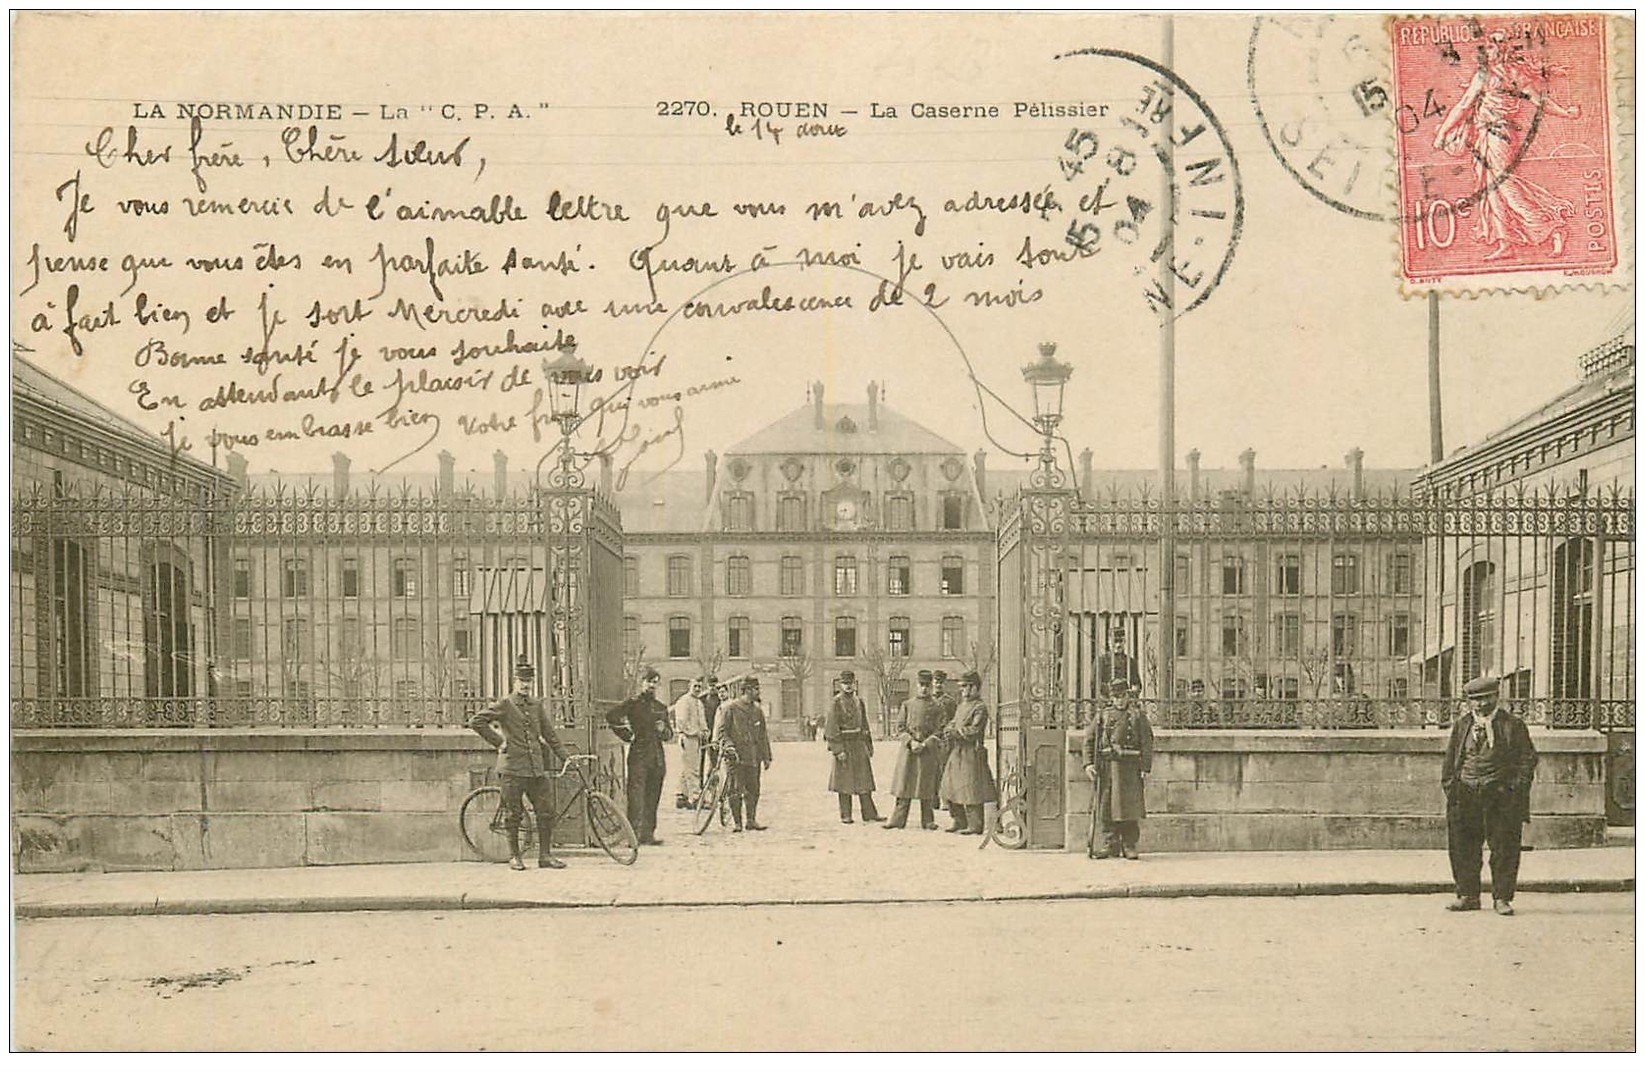 LA NORMANDIE – La "C. P. A."
2270. ROUEN – La Caserne Pélissier
le 14 aout
Cher frère, Chère sœur,
Je vous remercie de l'aimable lettre que vous m'avez adressée et
pense que vous êtes en parfaite santé. Quant à moi je vais tout
à fait bien et je sort Mercredi avec une convalescence de 2 mois
Bonne santé je vous souhaite
En attendant le plaisir de vous voir
je vous embrasse bien Votre frère qui vous aime
REPUBLIQUE FRANÇAISE
10c
POSTES
O. ROTY
E. MOUCHON
5 45
04
NE-INF
RE
04
SEINE-INF